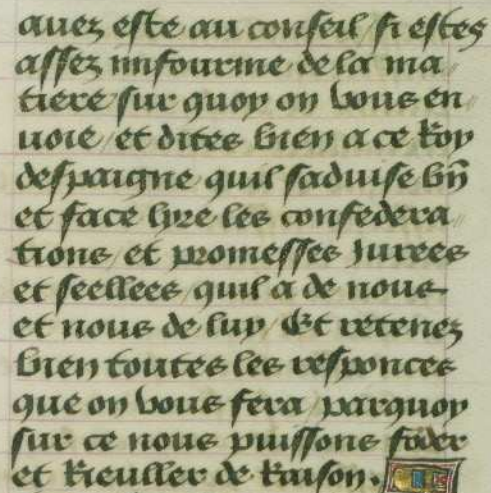 auez este au conseil / si estes
assez imfourme de la ma
tiere sur quoy on vous en
uoie / et dites bien a ce Roy
despaigne quil saduise bn̄
et face lyre les confedera
tions et promesses Jurees
et seellees / quil a de nous
et nous de luy / Et retenez
bien toutes les responces
que on vous fera / parquoy
sur ce nous puissons foder
et Rieuller de Raison.